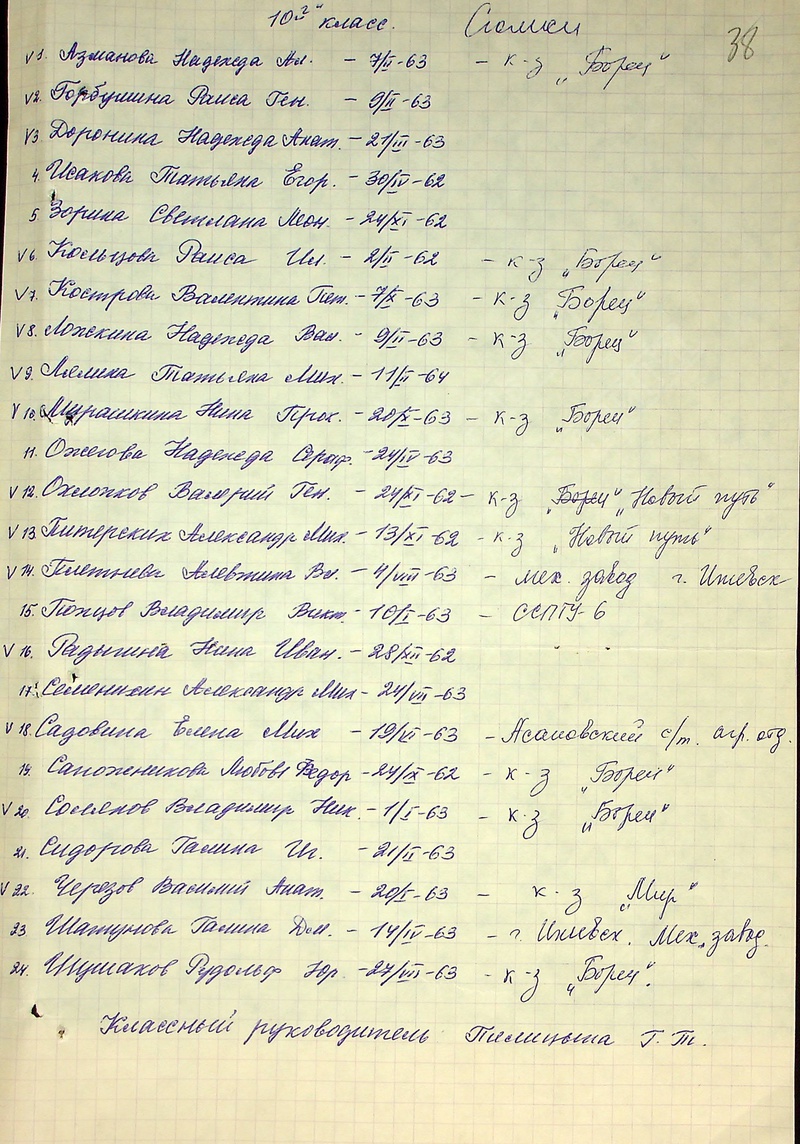 10 "г" класс. Сюмси
38
V 1. Азманова Надежда Ал. - 7/II-63 - к-з „Борец“
V 2. Горбушина Раиса Ген. - 9/II-63
V 3 Доронина Надежда Анат. - 21/III-63
4. Исакова Татьяна Егор. - 30/IV-62
5 Зорина Светлана Леон. - 24/XI-62
V 6. Кольцова Раиса Ил. - 2/II-62 - к-з „Борец“
V 7. Кострова Валентина Пет. - 7/X-63 - к-з „Борец“
V 8. Ложкина Надежда Вал. - 9/II-63 - к-з „Борец“
V 9. Лялина Татьяна Мих. - 11/II-64
V 10. Мурашкина Нина Прок. - 20/X-63 - к-з „Борец“
11. Ожегова Надежда - 24/IV-63
V 12. Охлопков Валерий Ген. - 24/XI-62 - к-з „Борец“ „Новый путь“
V 13 Питерских Александр Мих. - 13/XI-62 - к-з „Новый путь“
V 14. Плетнева Алевтина Вл. - 4/VIII-63 - мех. завод г. Ижевск
15. Попцов Владимир Викт. - 10/I-63 - ССПТУ-6
V 16. Радыгина Нина Иван. - 28/XII-62
17. Семенихин Александр Мих - 24/VII-63
V 18. Садовина Елена Мих - 19/VI-63 - Асановский с/т. агр. отд.
19. Сапожникова Любовь Федор - 24/IX-62 - к-з „Борец“
V 20. Соляков Владимир Ник. - 1/I-63 - к-з „Борец“
21. Сидорова Галина Иг. - 21/II-63
V 22. Черезов Василий Анат. - 20/I-63 - к-з „Мир“
23 Шатунова Галина Дм. - 14/IV-63 - г. Ижевск. Мех. завод.
24. Шушаков Рудольф Юр. - 27/VII-63 - к-з „Борец“.
Классный руководитель Пилицына Г. Т.